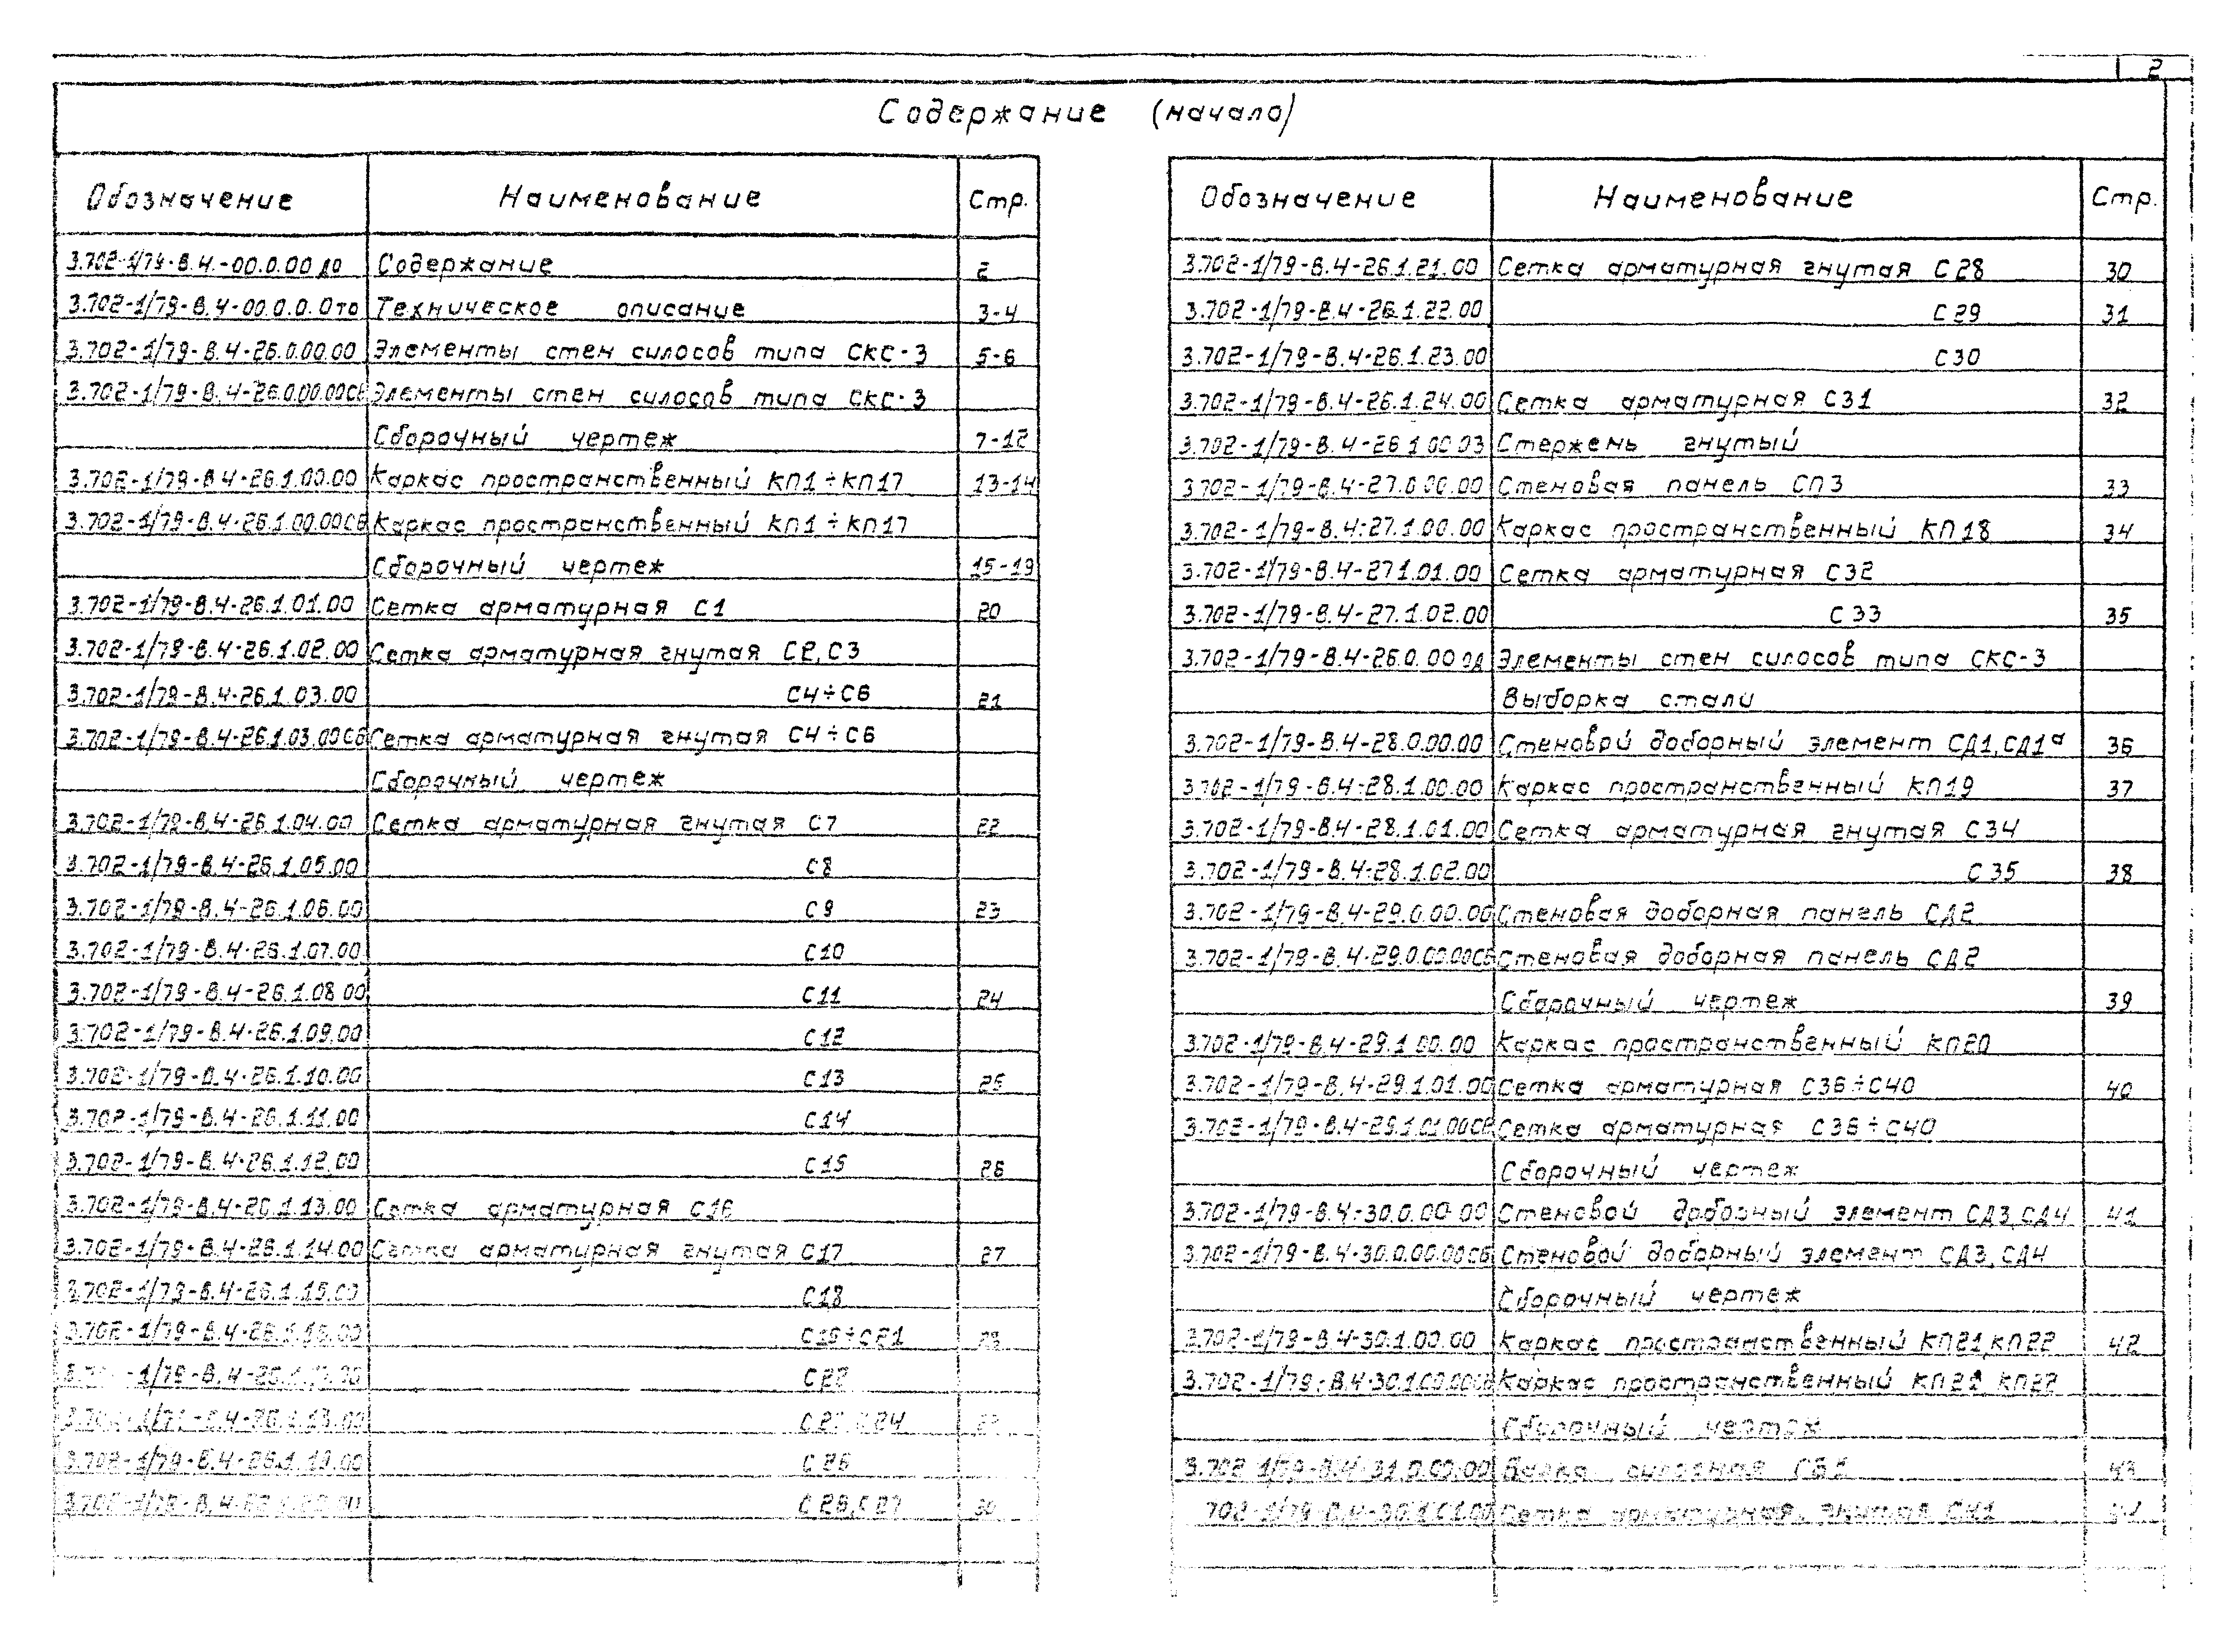 2
Содержание (начало)
Обозначение Наименование Стр.
3.702-1/79-В.4.-00.0.00 до Содержание 2
3.702-1/79-В.4-00.0.0.0то Техническое описание 3-4
3.702-1/79-В.4-26.0.00.00 Элементы стен силосов типа СКС-3 5-6
3.702-1/79-В.4-26.0.00.00СБ Элементы стен силосов типа СКС-3
Сборочный чертеж 7-12
3.702-1/79-В.4-26.1.00.00 Каркас пространственный КП1÷КП17 13-14
3.702-1/79-В.4-26.1.00.00СБ Каркас пространственный КП1÷КП17
Сборочный чертеж 15-19
3.702-1/79-В.4-26.1.01.00 Сетка арматурная С1 20
3.702-1/79-В.4-26.1.02.00 Сетка арматурная гнутая С2,С3
3.702-1/79-В.4-26.1.03.00 С4÷С6 21
3.702-1/79-В.4-26.1.03.00СБ Сетка арматурная гнутая С4÷С6
Сборочный чертеж
3.702-1/79-В.4-26.1.04.00 Сетка арматурная гнутая С7 22
3.702-1/79-В.4-26.1.05.00 С8
3.702-1/79-В.4-26.1.06.00 С9 23
3.702-1/79-В.4-26.1.07.00 С10
3.702-1/79-В.4-26.1.08.00 С11 24
3.702-1/79-В.4-26.1.09.00 С12
3.702-1/79-В.4-26.1.10.00 С13 25
3.702-1/79-В.4-26.1.11.00 С14
3.702-1/79-В.4-26.1.12.00 С15 26
3.702-1/79-В.4-26.1.13.00 Сетка арматурная С16
3.702-1/79-В.4-26.1.14.00 Сетка арматурная гнутая С17 27
3.702-1/79-В.4-26.1.15.00 С18
3.702-1/79-В.4-26.1.16.00 С19÷С21 28
С22
С24
3.702-1/79-В.4-26.1.19.00
С26,С27 30
Обозначение Наименование Стр.
3.702-1/79-В.4-26.1.21.00 Сетка арматурная гнутая С28 30
3.702-1/79-В.4-26.1.22.00 С29 31
3.702-1/79-В.4-26.1.23.00 С30
3.702-1/79-В.4-26.1.24.00 Сетка арматурная С31 32
3.702-1/79-В.4-26 1 00 03 Стержень гнутый
3.702-1/79-В.4-27.0 00.00 Стеновая панель СП3 33
3.702-1/79-В.4-27.1.00.00 Каркас пространственный КП18 34
3.702-1/79-В.4-27 1.01.00 Сетка арматурная С32
3.702-1/79-В.4-27.1.02.00 С33 35
3.702-1/79-В.4-26.0.00 од Элементы стен силосов типа СКС-3
Выборка стали
3.702-1/79-В.4-28.0.00.00 Стеновой доборный элемент СД1,СД1а 36
3.702-1/79-В.4-28.1.00.00 Каркас пространственный КП19 37
3.702-1/79-В.4-28.1.01.00 Сетка арматурная гнутая С34
3.702-1/79-В.4-28.1.02.00 С35 38
3.702-1/79-В.4-29.0.00.00 Стеновая доборная панель СД2
3.702-1/79-В.4-29.0.00.00СБ Стеновая доборная панель СД2
Сборочный чертеж 39
3.702-1/79-В.4-29.1 00.00 Каркас пространственный КП20
3.702-1/79-В.4-29.1.01.00 Сетка арматурная С36÷С40 40
3.702-1/79-В.4-29.1.01.00СБ Сетка арматурная С36÷С40
Сборочный чертеж
3.702-1/79-В.4-30.0.00.00 Стеновой доборный элемент СД3,СД4 41
3.702-1/79-В.4-30.0.00.00СБ Стеновой доборный элемент СД3,СД4
Сборочный чертеж
3.702-1/79-В.4-30.1.00.00 Каркас пространственный КП21,КП22 42
3.702-1/79-В.4-30.1.00.00СБ Каркас пространственный КП21 КП22
Сборочный чертеж
3.702-1/79-В.4-31.0.00.00 43
702-1/79-В.4-30.1.01.00 Сетка арматурная гнутая С41